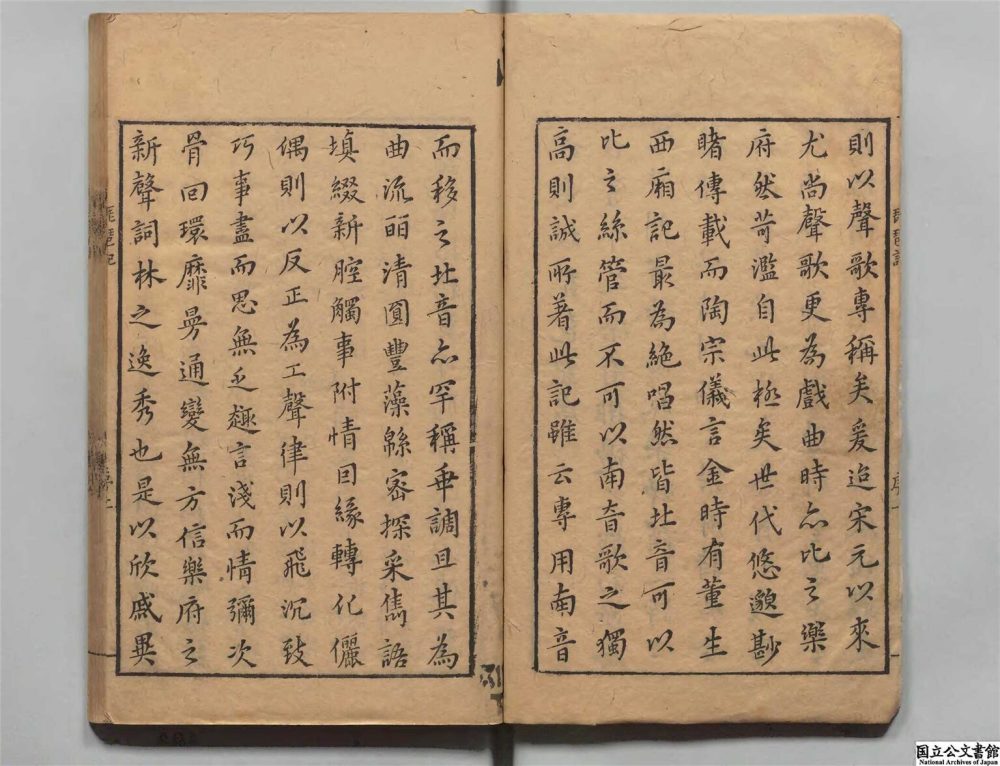 則以聲歌專稱矣爰迨宋元以來
尤尚聲歌更為戲曲時亦比之樂
府然苛濫自此極矣世代悠邈尠
睹傳載而陶宗儀言金時有董生
西廂記最為絕唱然皆北音可以
比之絲管而不可以南音歌之獨
高則誠所著此記雖云專用南音
而移之北音亦罕稱乖調且其為
曲流丽清圓豐藻緜密探采雋語
填綴新腔觸事附情回緣轉化儷
偶則以反正為工聲律則以飛沉致
巧事盡而思無乏趣言淺而情彌次
骨回環靡曼通變無方信樂府之
新聲詞林之逸秀也是以欣戚異
琵琶記
序一
琵琶記
序二
国立公文書館
National Archives of Japan